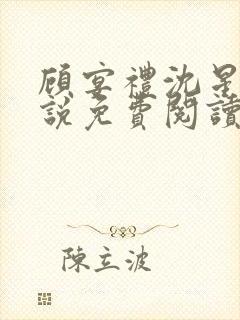 顾宴禮沈星
說免費閱讀
陳立波